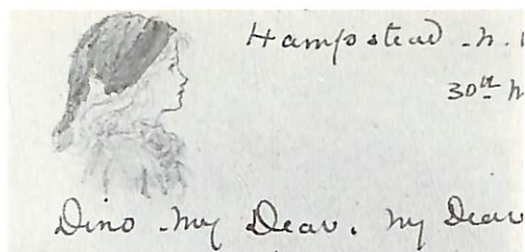 Hampstead. N.
30th
Dino. My Dear. My Dear